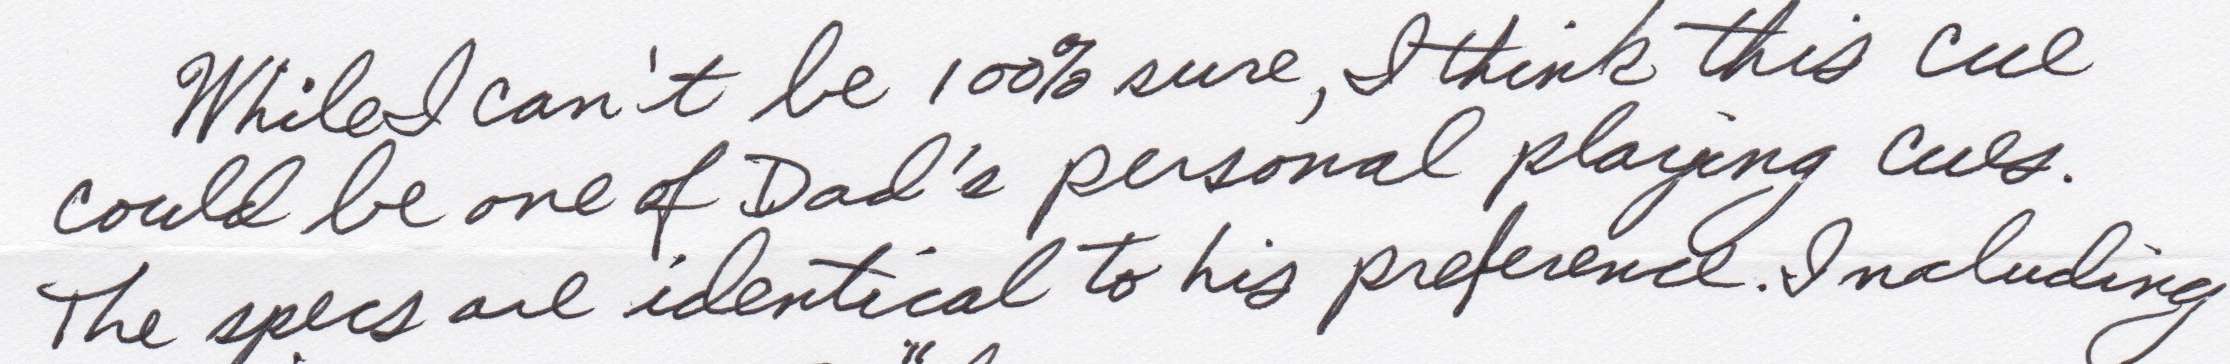 While I can't be 100% sure, I think this cue
could be one of Dad's personal playing cues.
The specs are identical to his preference. Including